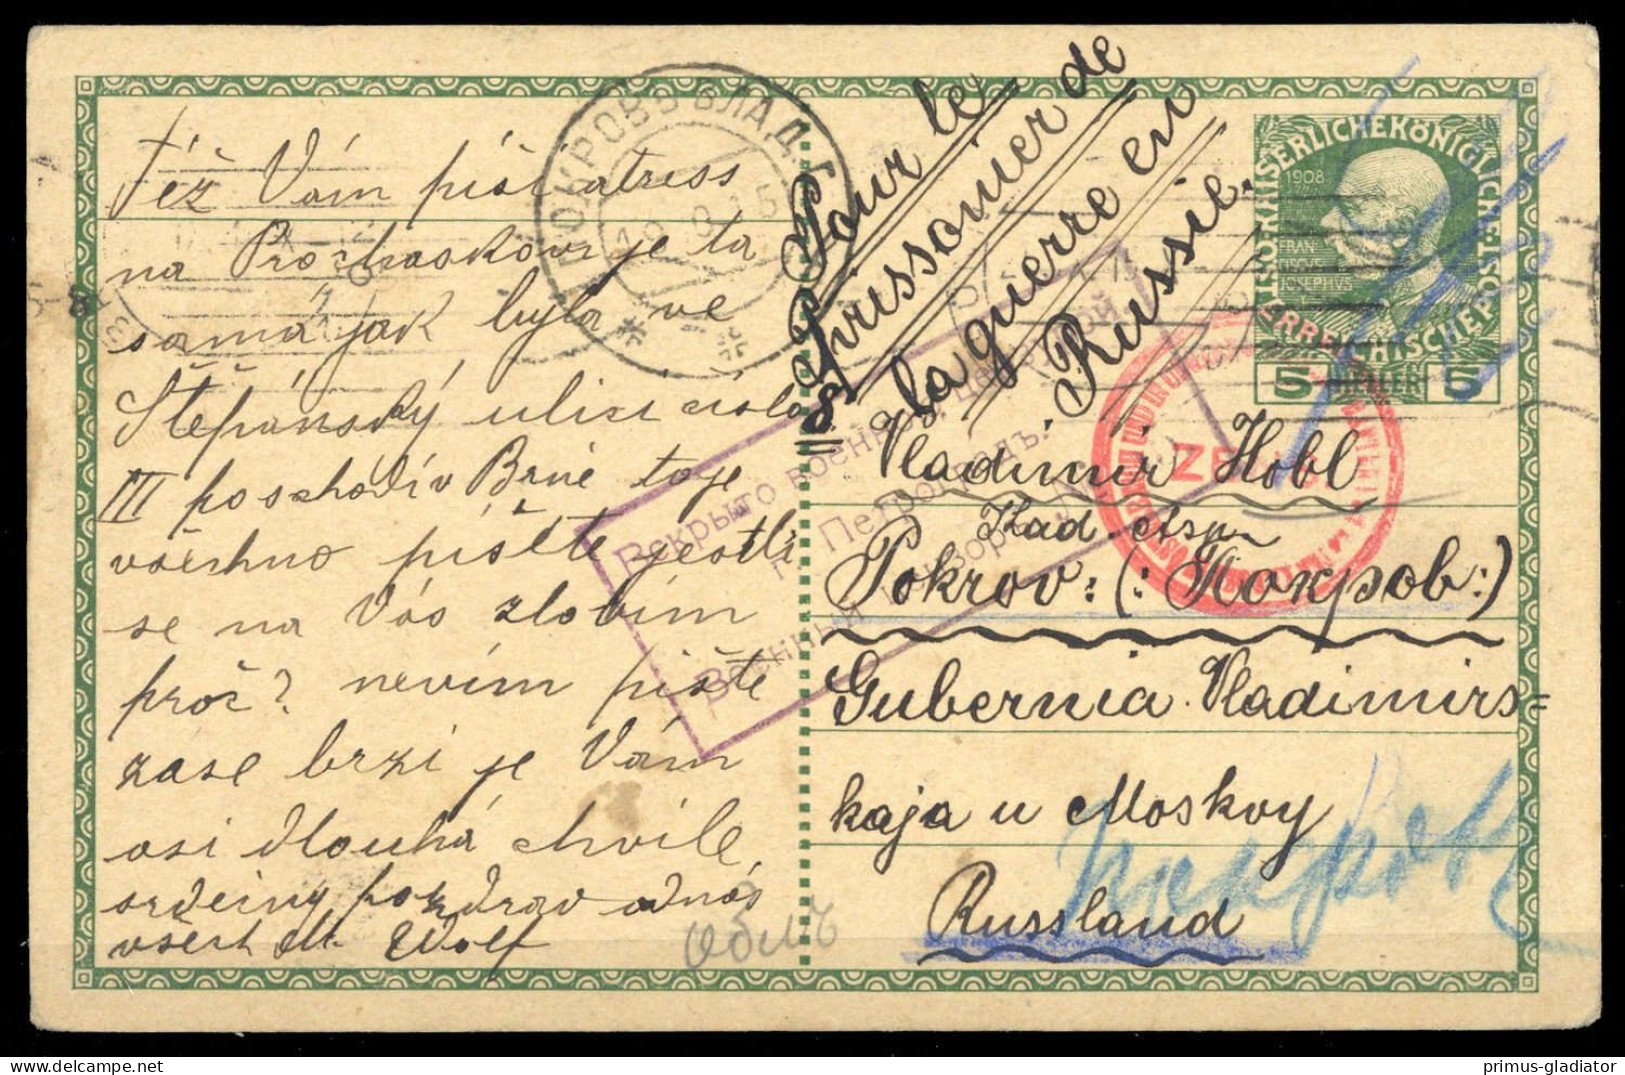 Též Vám píši atress
na Prochaskovi je ta
samá jak byla ve
Štěpánský ulici číslo
III poschodí v Brně toje
všechno pište jestli
se na Vás zlobím
proč? nevím pište
zase brzi je Vám
asi dlouhá chvíle
srdečný pozdrav odnás
všech M. Wolf
Обль
ПОКРОВЪ ВЛАД. Г.
18 8 15
Pour le
Prissonier de
la guerre en
Russie.
KAISERLICHE KÖNIGLICHE POST
ÖSTERREICHISCHE POST
1908
FRAN
CISCVS
JOSEPHVS
I
5 HELLER 5
Вскрыто военной цензурой
г. Петроградъ.
Военный цензоръ
ZENS
Vladimir Hobl
Kad. Asp.
Pokrov: (: Покров:)
Gubernia Vladimirs=
kaja u Moskvy
Russland
Покров
www.delcampe.net
primus-gladiator